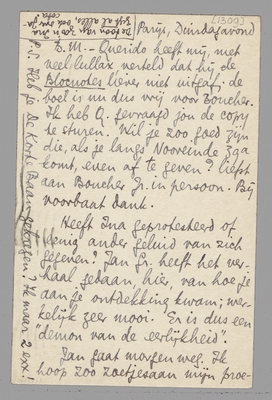 [1309]
Parijs, Dinsdagavond
B. M. - Querido heeft mij, met
veel lullax verteld dat hij de
Blocnotes liever niet uitgaf; de
boel is nu dus vrij voor Boucher.
Ik heb Q. gevraagd jou de copy
te sturen. Wil je zoo goed zijn
die, als je langs Noordeinde 39a
komt, even af te geven? liefst
aan Boucher Jr. in persoon. Bij
voorbaat dank.
Heeft Ina geprotesteerd of
eenig ander geluid van zich
gegeven? Jan Gr. heeft het ver-
haal gedaan, hier, van hoe je
aan je ontdekking kwam; wer-
kelijk zeer mooi. Er is dus een
"demon van de eerlijkheid".
Jan gaat morgen weg. Ik
hoop zoo zoetjesaan mijn proe-
P.S. Heb je De Korte Baan gekregen? Ik maar 2 ex.!